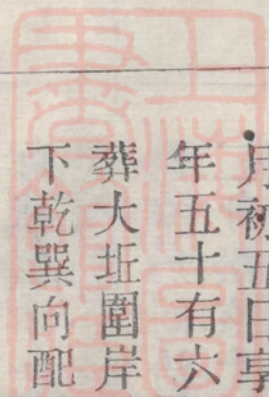 月初五日享
年五十有六
葬大坵圍岸
下乾巽向配